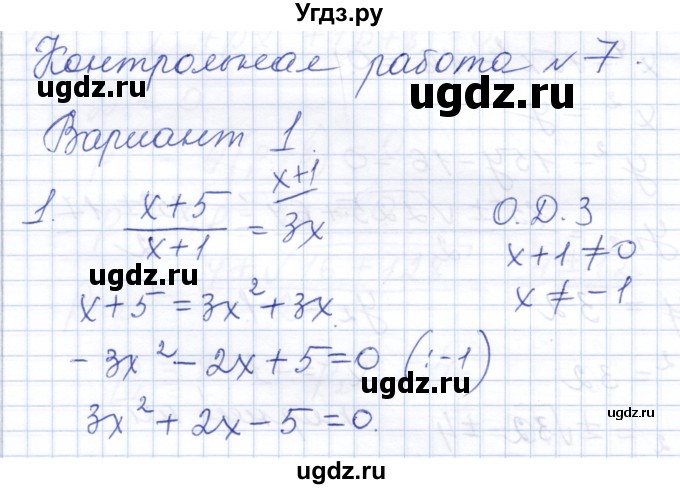 Угдз.ру
Контрольная работа №7.
ugdz.ru
Вариант 1.
ugdz.ru
1. (x+5)/(x+1) = 3x / x+1
О.Д.З
x+1≠0
ugdz.ru
x+5=3x²+3x.
x≠-1
-3x²-2x+5=0 (:-1)
ugdz.ru
3x²+2x-5=0.
ugdz.ru
ugdz.ru